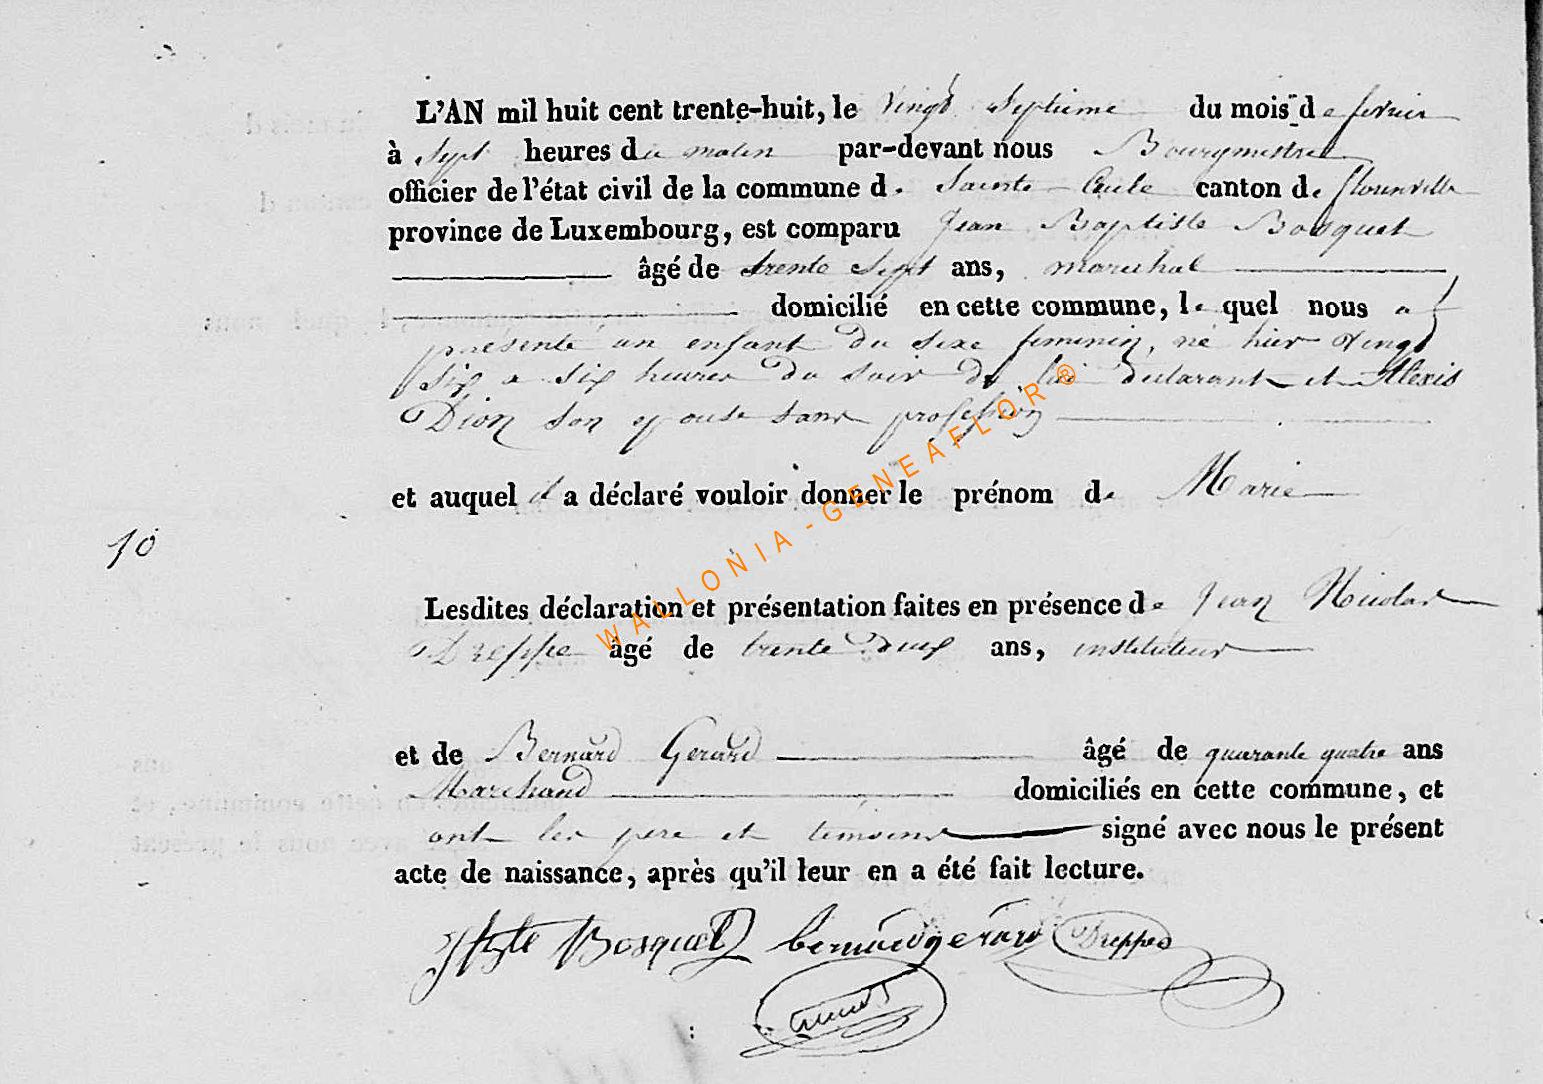 L'AN mil huit cent trente-huit, le vingt septieme du mois de fevrier
à sept heures du matin par-devant nous Bourgmestre
officier de l'état civil de la commune d. Sainte Cecile canton de florenville
province de Luxembourg, est comparu Jean Baptiste Bosquet
âgé de trente sept ans, marechal
domicilié en cette commune, le quel nous a
presenté un enfant du sexe feminin, né hier vingt
six a six heures du soir de lui declarant et Alexis
Dion son epouse sans profession
et auquel il a déclaré vouloir donner le prénom de Marie
10
Lesdites déclaration et présentation faites en présence de Jean Nicolas
Dreppe âgé de trente deux ans, instituteur
et de Bernard Gerard âgé de quarante quatre ans
Marchand domiciliés en cette commune, et
ont les pere et temoins signé avec nous le présent
acte de naissance, après qu'il leur en a été fait lecture.
Bosquet bernard gerard Dreppe
WALLONIA-GENEAFLOR®